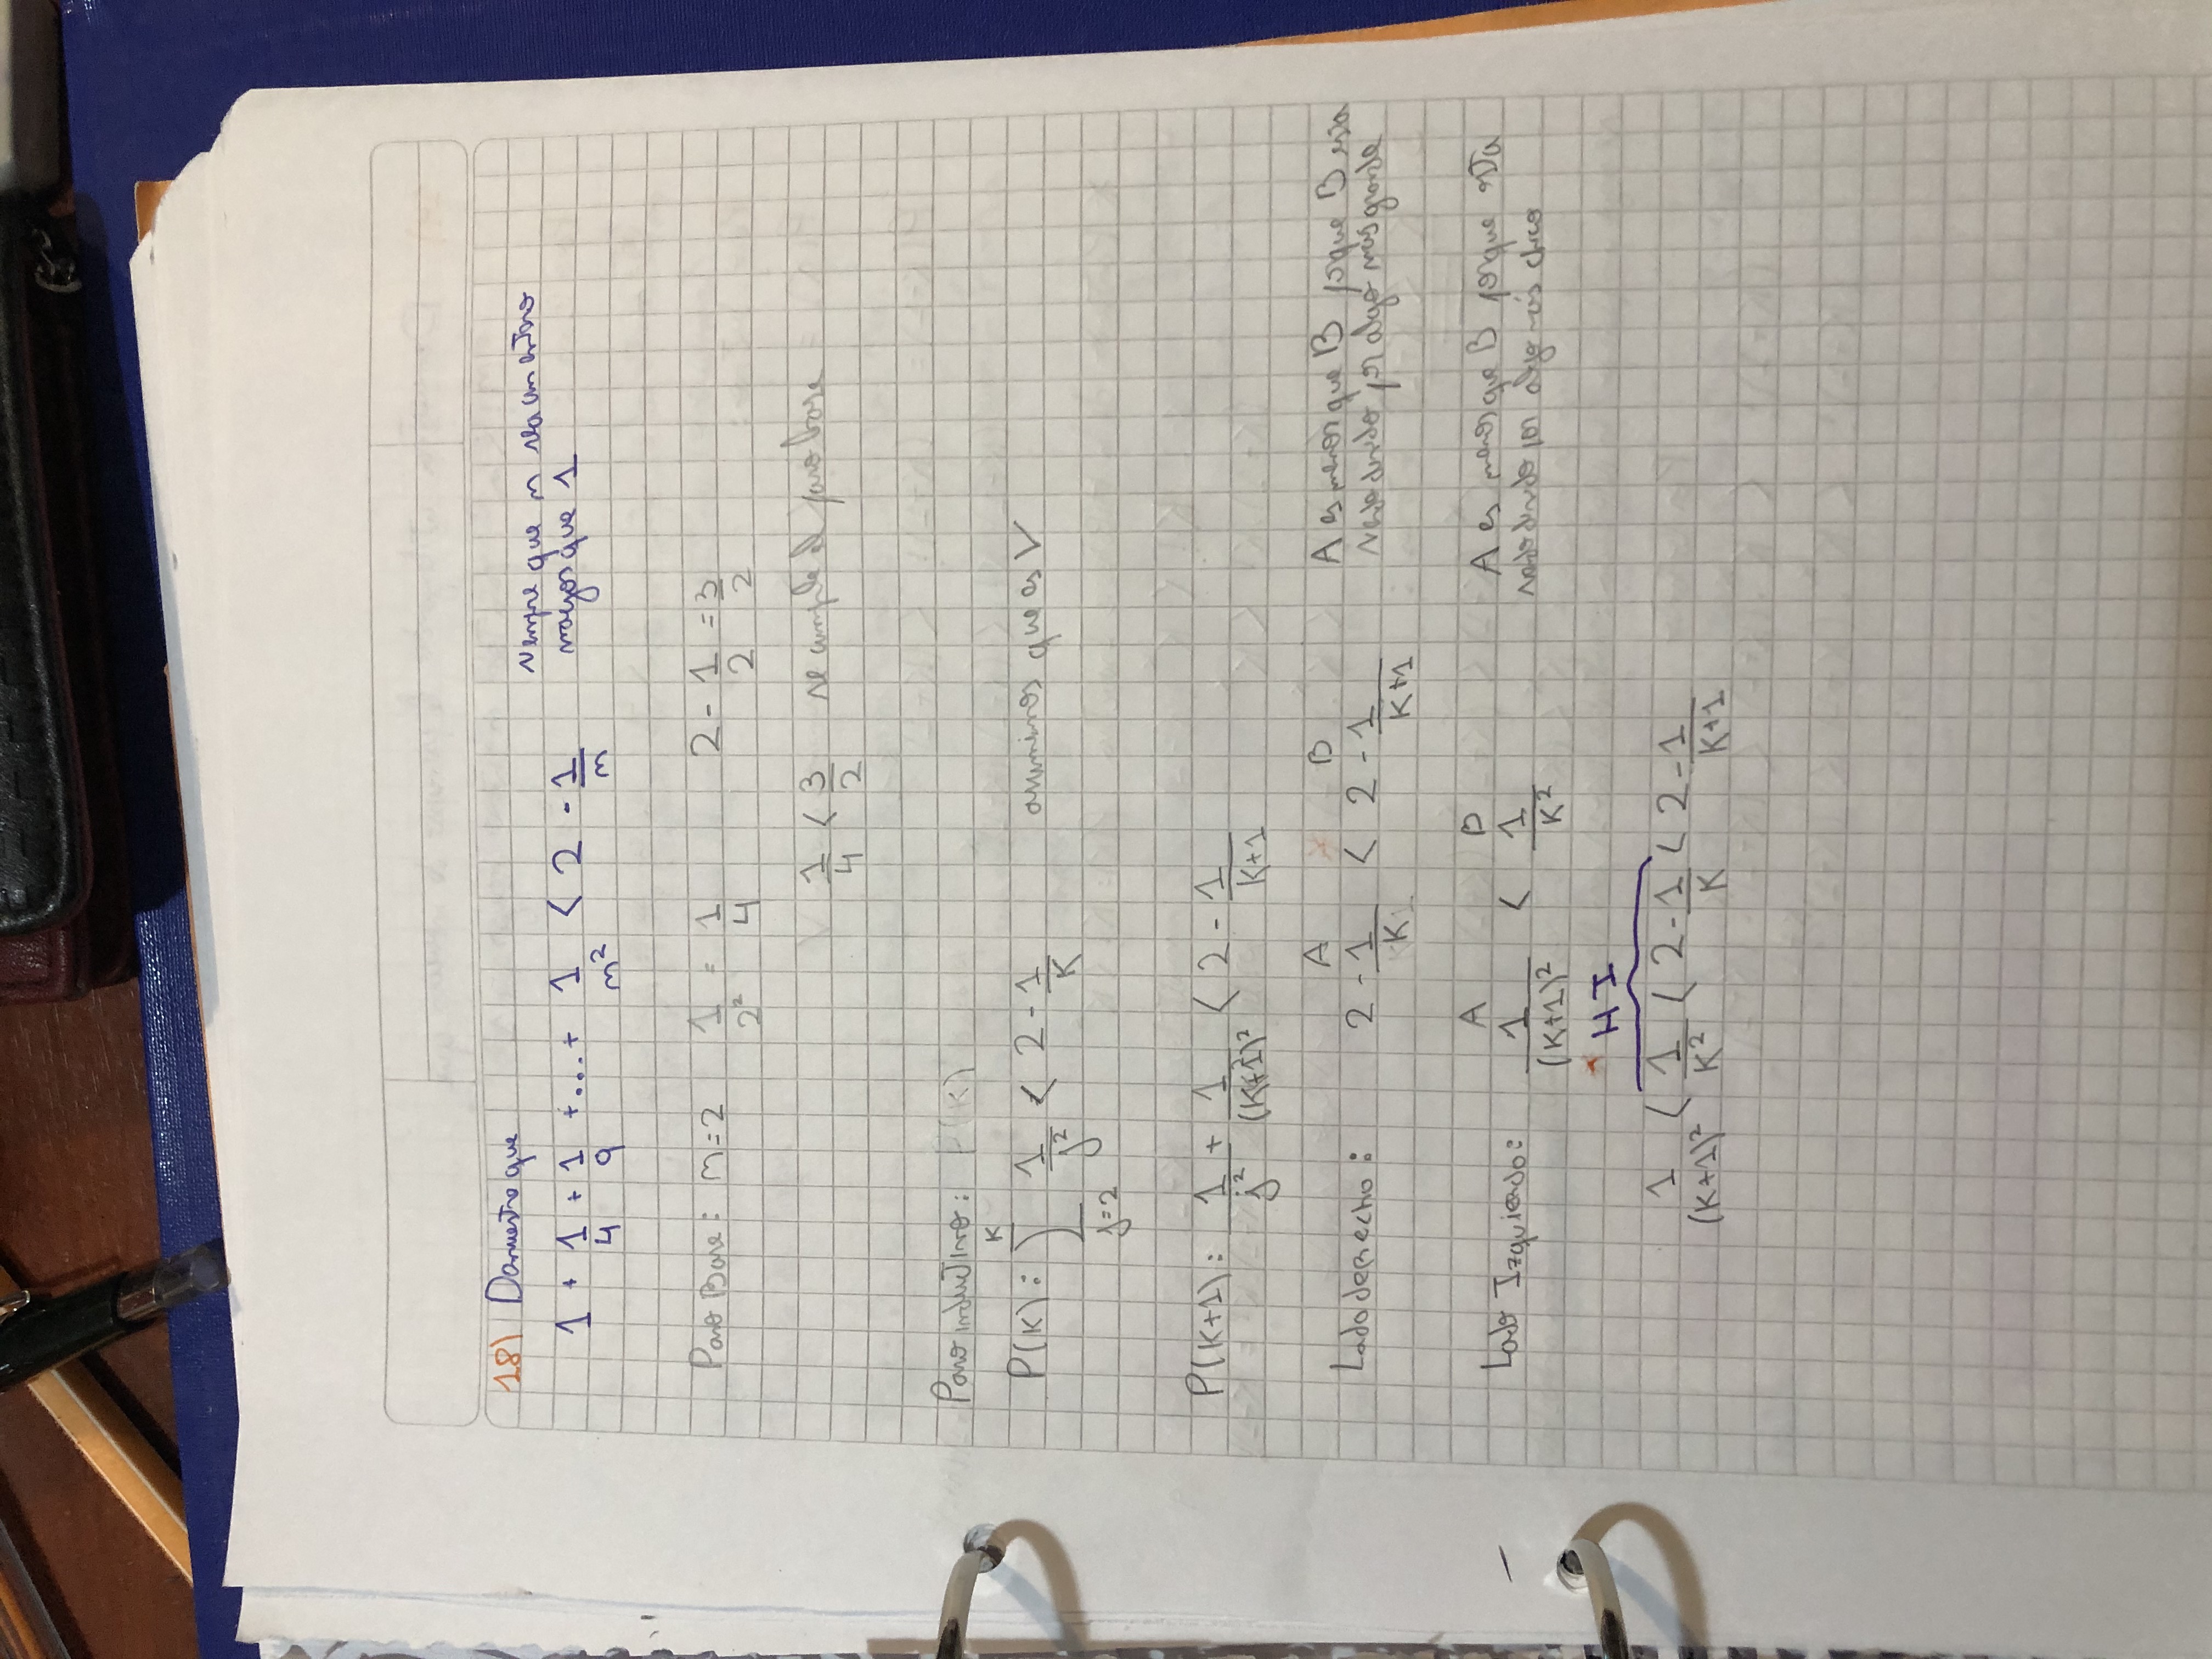 18) Demuestre que
1 + 1/4 + 1/9 + ... + 1/n² < 2 - 1/n siempre que n sea un entero
mayor que 1
Paso Base: n=2 1/2² = 1/4 2 - 1/2 = 3/2
1/4 < 3/2 se cumple el paso base
Paso inductivo: P(K)
P(K): ∑_{j=2}^{K} 1/j² < 2 - 1/K asumimos que es V
P(K+1): 1/j² + 1/(K+1)² < 2 - 1/(K+1)
A B
Lado derecho: 2 - 1/K < 2 - 1/(K+1) A es menor que B porque B esta
siendo dividido por algo más grande
A B
Lado Izquierdo: 1/(K+1)² < 1/K² A es menor que B porque esta
siendo dividido por algo más chico
* HI
1/(K+1)² < 1/K² < 2 - 1/K < 2 - 1/(K+1)